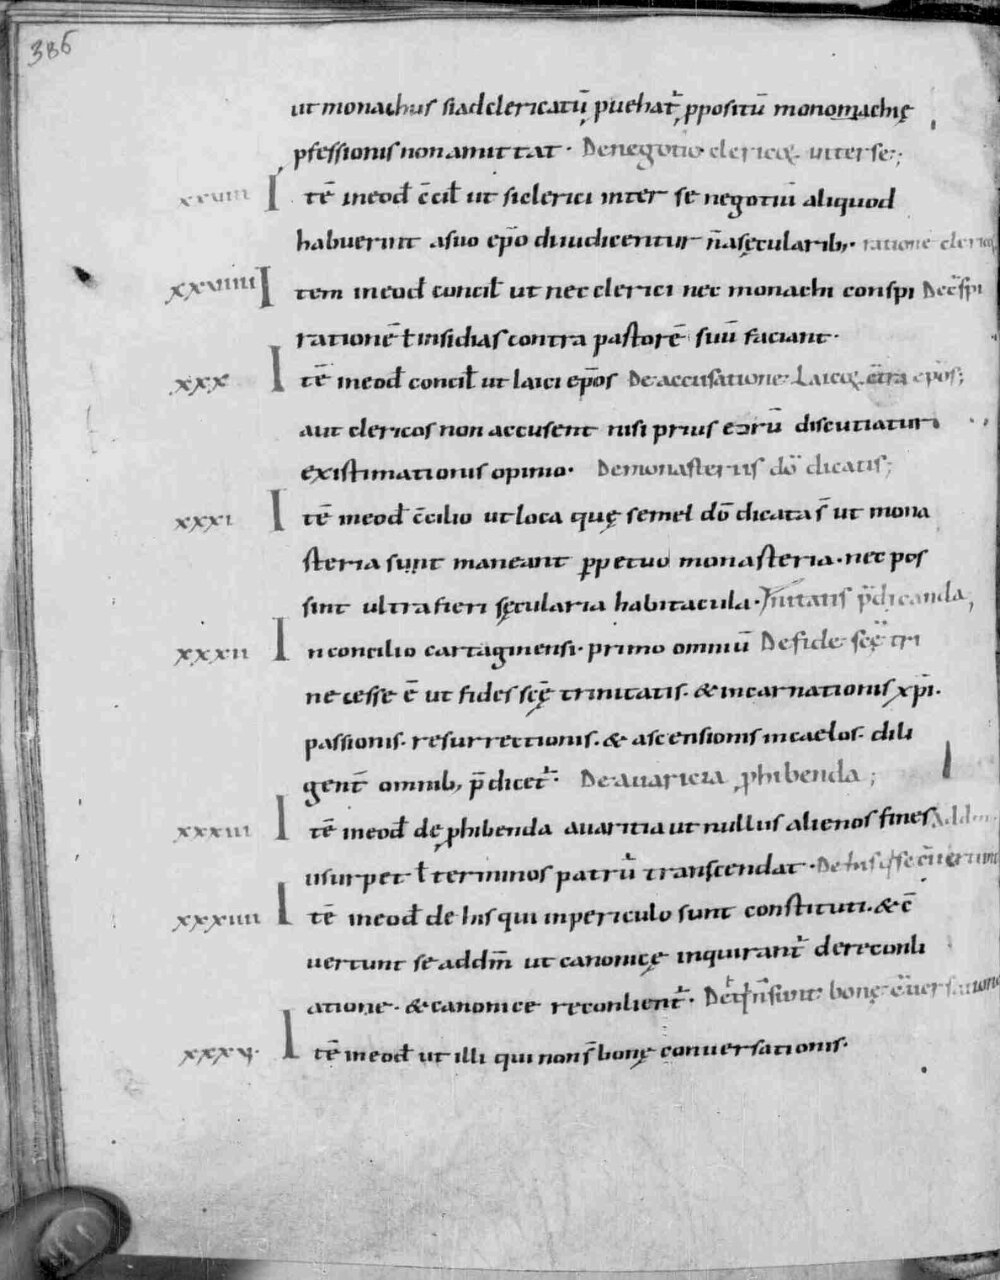 386
ut monachus si ad clericatū ꝓuehat᷑ ꝓpositū monomachię
ꝓfessionis non amittat· De negotio clericoꝝ inter se;
xxviii Itē in eod̄ c̄cil̄ ut si clerici inter se negotiū aliquod
habuerint a suo ep̄o diiudicentur n̄ a sęcularib;· ratione clerico
xxviiii Item in eod̄ concil̄ ut nec clerici nec monachi conspi De c̄spi
rationē ł insidias contra pastorē suū faciant·
xxx Itē in eod̄ concil̄ ut laici ep̄os De accusatione Laicoꝝ c̄tra ep̄os;
aut clericos non accusent nisi prius eorū discutiatur
existimationis opinio· De monasteriis dō dicatis;
xxxi Itē in eod̄ c̄cilio ut loca quę semel dō dicata s̄ ut mona
steria sunt maneant ꝑpetuo monasteria· nec pos
sint ultra fieri sęcularia habitacula· Trinitatis p̄dicanda
xxxii In concilio cartaginensi· primo omniū De fide scę̄ tri
necesse ē ut fides scę̄ trinitatis· & incarnationis xp̄i·
passionis· resurrectionis· & ascensionis in caelos· dili
gent̄ omnib; p̄dicet᷑· De auaricia ꝓhibenda;
xxxiii Itē in eod̄ de ꝓhibenda auaritia ut nullus alienos fines Addm̄
usurpet ł terminos patrū transcendat· De his q̄ se c̄uertunt
xxxiiii Itē in eod̄ de his qui in periculo sunt constituti· & c̄
uertunt se ad dm̄ ut canonicę inquirant᷑ de reconli
atione· & canonice reconlient᷑· De t̄ q̄ n̄ sunt bonę c̄uersatione
xxxv Itē in eod̄ ut illi qui non s̄ bonę conuersationis·